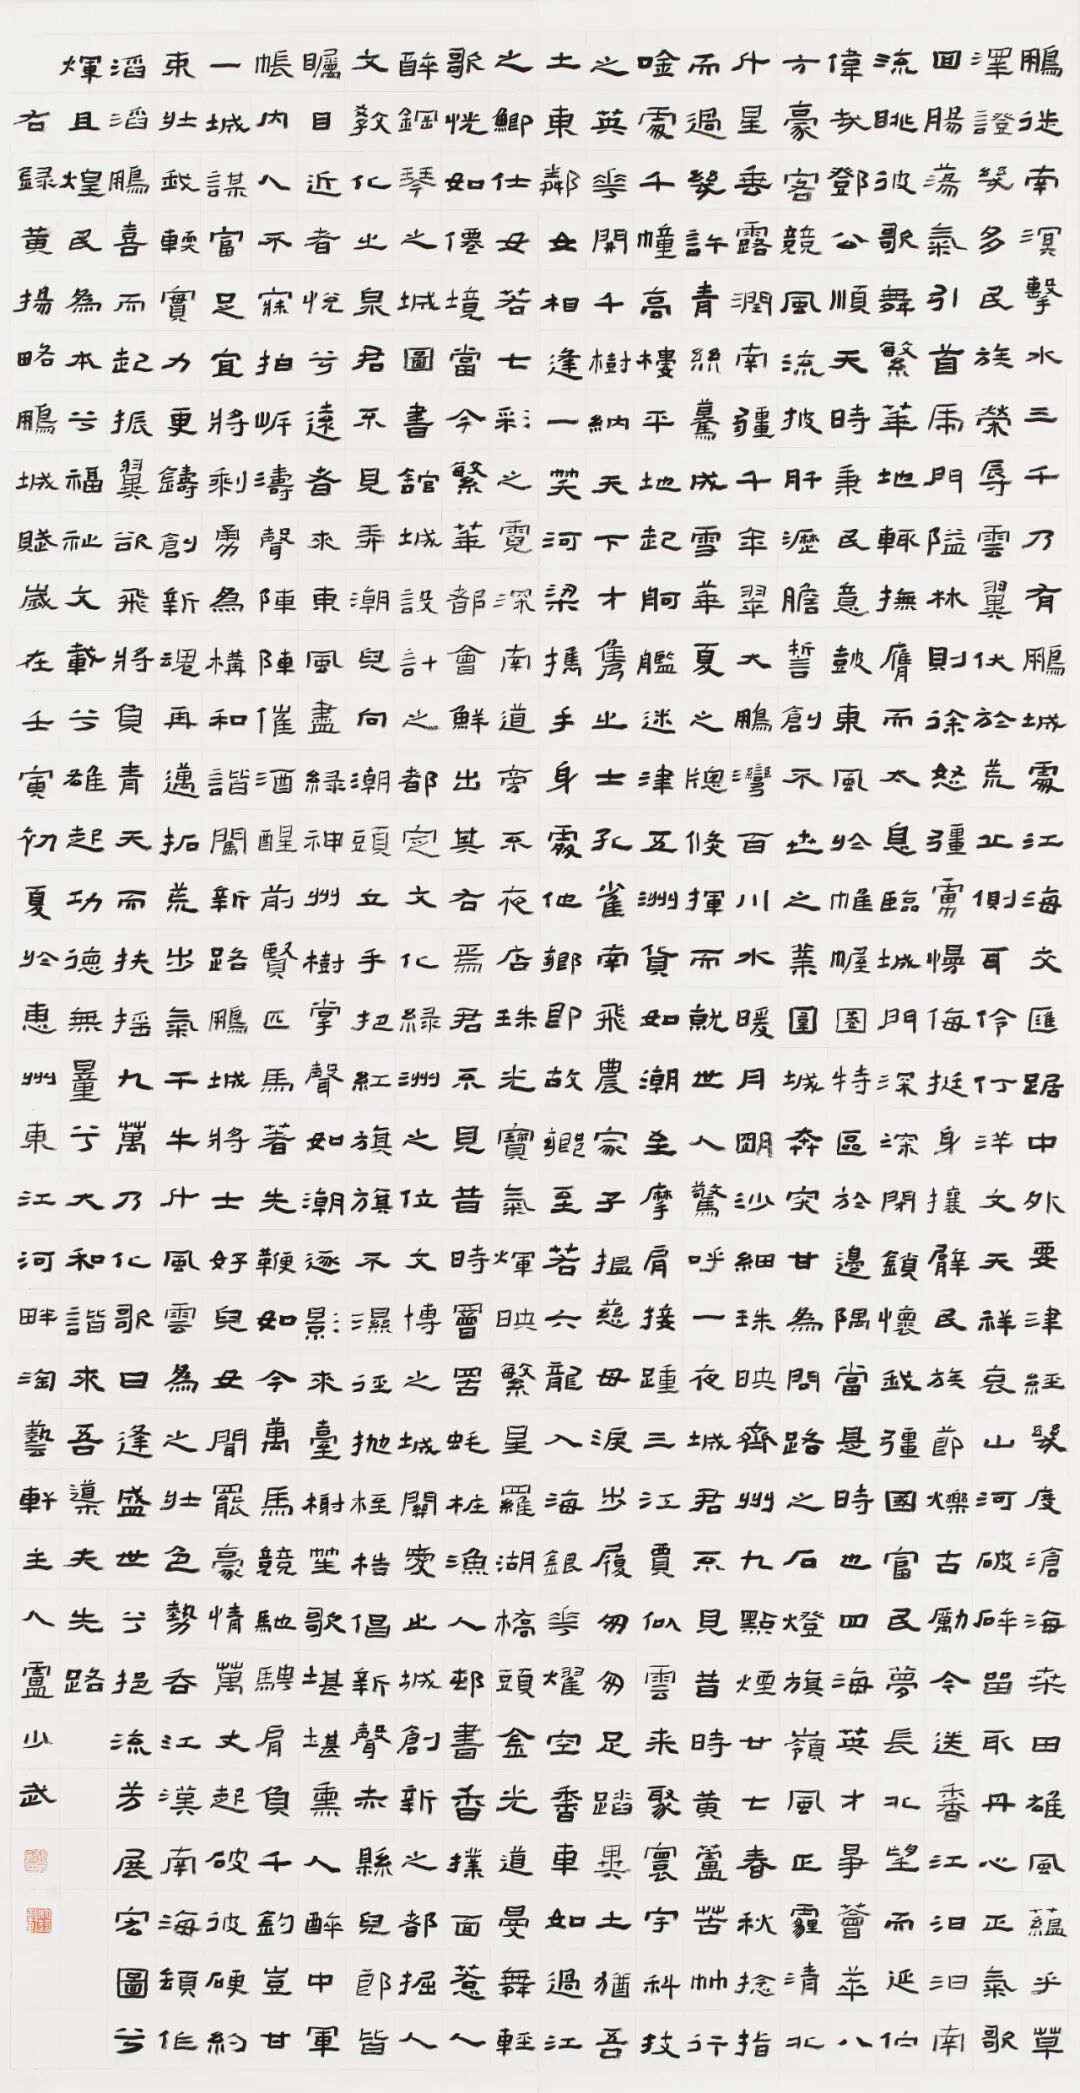 鵬徙南溟擊水三千乃有鵬城處江海交匯踞中外要津經幾度滄海桑田雄風蘊乎草
澤證幾多民族榮辱雲翼伏於荒丘側耳伶仃洋文天祥哀山河破碎留取丹心正氣歌
回腸蕩氣引首虎門隘林則徐怒疆虜慢侮挺身攘臂民族節爍古勵今送香江汩汩南
流眺彼歌舞繁華地輒撫膺而太息臨城門深深閉鎖懷我疆國富民夢長北望而延佇
偉哉鄧公順天時秉民意鼓東風於帷幄圈特區於邊隅當是時也四海英才爭薈萃八
方豪客競風流披肝瀝膽誓創不世之業圍城奔突甘為問路之石燈旗嶺風正霾清北
斗星垂露潤南疆千年翠大鵬灣百川水暖月明沙細珠映齊州九點煙廿七春秋捻指
而過幾許青絲驀成雪華夏之牕倏揮而就世人驚呼一夜城君不見昔時黃蘆苦竹行
唫處千幢高樓平地起舸艦迷津五洲貨如潮至摩肩接踵三江賈似雲來聚寰宇科技
之英華開千樹納天下才雋之士孔雀南飛農家子搵慈母淚步履匆匆足踏異土猶吾
土東鄰女相逢一笑河梁攜手身處他鄉即故鄉至若六龍入海銀華燿空香車如過江
之鯽仕女若七彩之霓深南道旁不夜店珠光寶氣輝映繁星羅湖橋頭金光道曼舞輕
歌恍如僊境當今繁華都會鮮出其右焉君不見昔時罾罟蚝樁漁人邨書香撲面惹人
醉鋼琴之城圖書館城設計之都定文化綠洲之位文博之城關愛此城創新之都掘人
文教化之泉君不見弄潮兒向潮頭立手把紅旗旗不濕徑拋桎梏倡新聲赤縣兒郎皆
矚目近者悅兮遠者來東風盡綠神州樹掌聲如潮逐影來臺榭笙歌堪堪熏人醉中軍
帳內人不寐拍岸濤聲陣陣催酒醒前賢匹馬著先鞭如今萬馬競馳騁肩負千鈞豈甘
一城謀富足宜將剩勇為構和諧闖新路鵬城將士好兒女聞罷豪情萬丈起破彼硬約
束壯我輭實力更鑄創新魂再邁拓荒步氣干牛斗風雲為之壯色勢吞江漢南海頌作
滔滔鵬喜而起振翼欲飛將負青天而扶搖九萬乃化歌曰逢盛世兮挹流芳展宏圖兮
輝且煌民為本兮福祉文載兮雄起功德無量兮大和諧來吾導夫先路
右錄黃揚略鵬城賦歲在壬寅初夏於惠州東江河畔淘藝軒主人盧少武